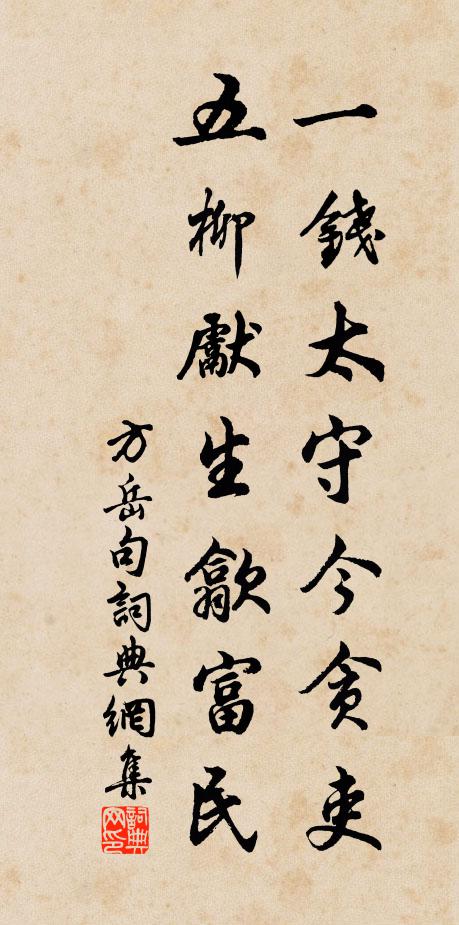 一錢太守今貪吏
五柳獻生歙富民
方岳句詞典網集
詞典網印